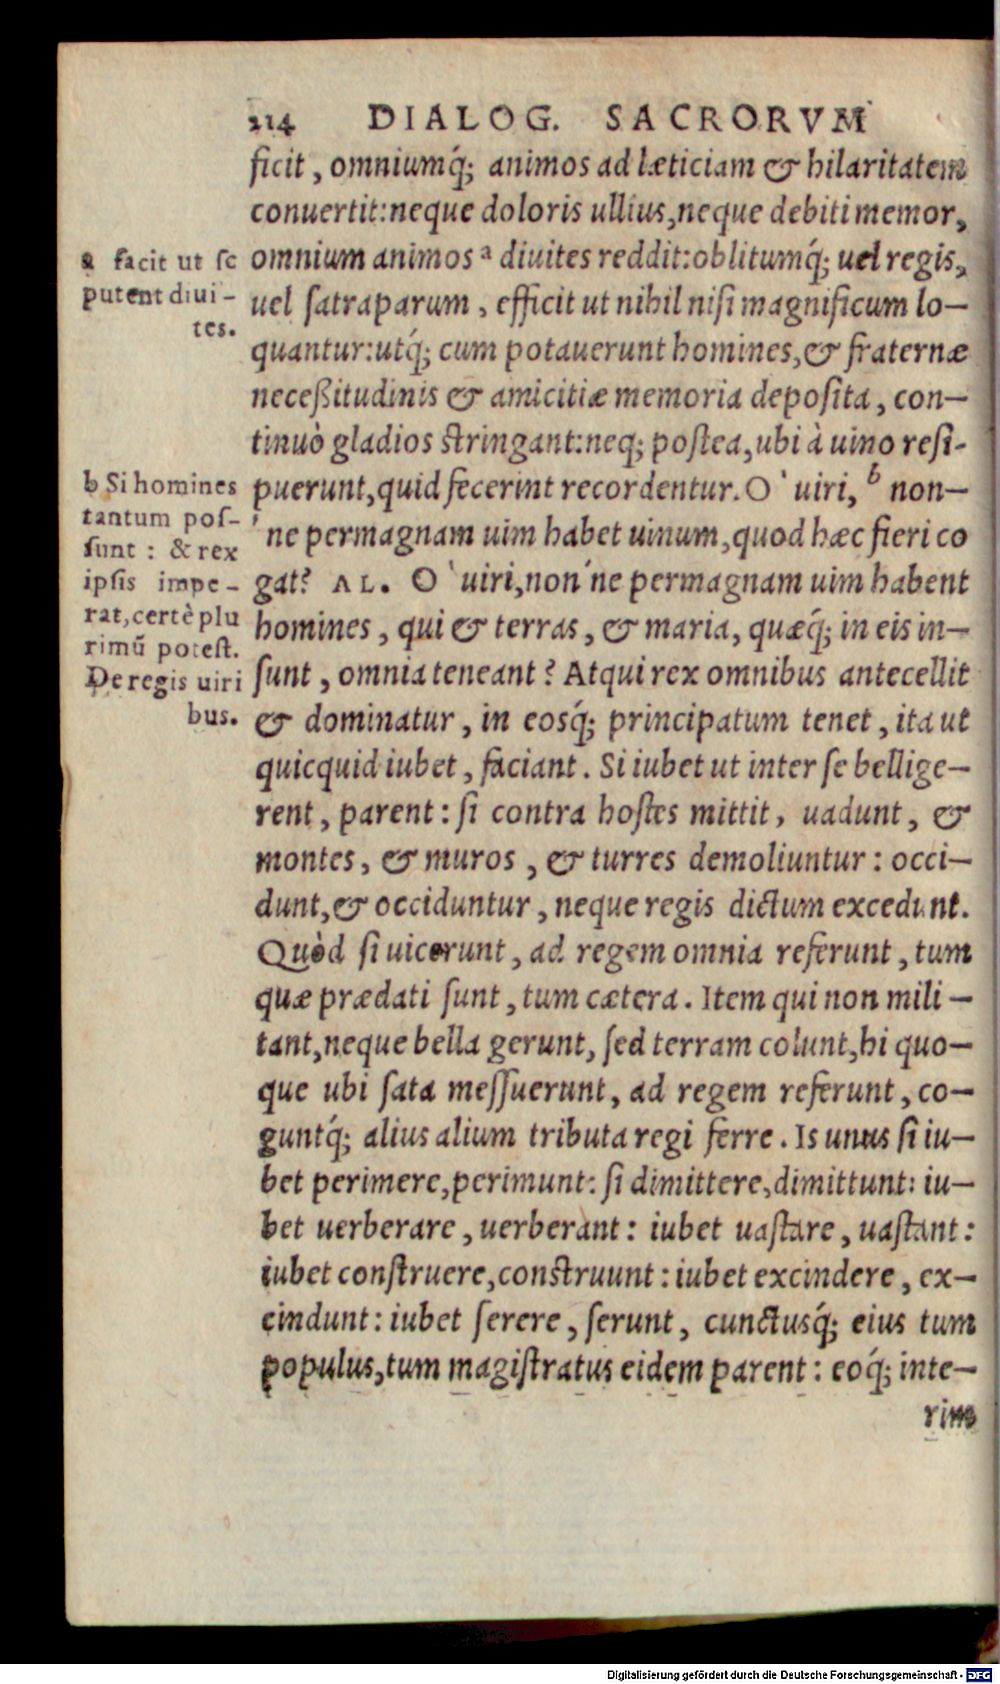 214 DIALOG. SACRORVM
ficit, omniumq́; animos ad læticiam & hilaritatem
conuertit: neque doloris ullius, neque debiti memor,
omnium animos ᵃ diuites reddit: oblitumq́; uel regis,
uel ſatraparum, efficit ut nihil niſi magnificum lo-
quantur: utq́; cum potauerunt homines, & fraternæ
neceßitudinis & amicitiæ memoria depoſita, con-
tinuò gladios ſtringant: neq; poſtea, ubi à uino reſi-
puerunt, quid fecerint recordentur. O` uiri, ᵇ non-
´ne permagnam uim habet uinum, quod hæc fieri co
gat? AL. O` uiri, non´ne permagnam uim habent
homines, qui & terras, & maria, quæq́; in eis in-
ſunt, omnia teneant? Atqui rex omnibus antecellit
& dominatur, in eosq́; principatum tenet, ita ut
quicquid iubet, faciant. Si iubet ut inter ſe bellige-
rent, parent: ſi contra hoſtes mittit, uadunt, &
montes, & muros, & turres demoliuntur: occi-
dunt, & occiduntur, neque regis dictum excedunt.
Quòd ſi uicerunt, ad regem omnia referunt, tum
quæ prædati ſunt, tum cætera. Item qui non mili-
tant, neque bella gerunt, ſed terram colunt, hi quo-
que ubi ſata meſſuerunt, ad regem referunt, co-
guntq́; alius alium tributa regi ferre. Is unus ſi iu-
bet perimere, perimunt: ſi dimittere, dimittunt: iu-
bet uerberare, uerberant: iubet uaſtare, uaſtant:
iubet conſtruere, conſtruunt: iubet excindere, ex-
cindunt: iubet ſerere, ſerunt, cunctusq́; eius tum
populus, tum magiſtratus eidem parent: eoq́; inte-
rim
a facit ut ſe
putent diui-
tes.
b Si homines
tantum poſ-
ſunt: & rex
ipſis impe-
rat, certè plu
rimũ poteſt.
De regis uiri
bus.
Digitalisierung gefördert durch die Deutsche Forschungsgemeinschaft - DFG